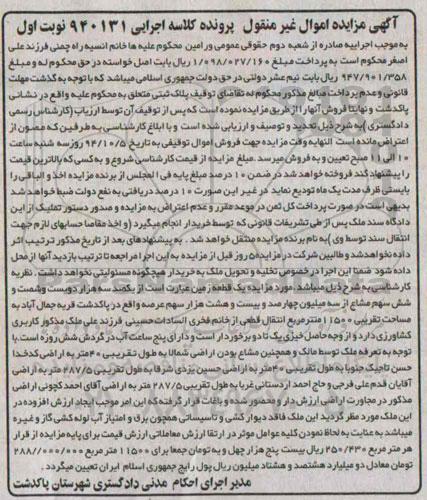 آگهی مزایده اموال غیر منقول پرونده کلاسه اجرایی ۹۴۰۱۳۱ نوبت اول
به موجب اجراییه صادره از شعبه دوم حقوقی عمومی ورامین محکوم علیه ها خانم انسیه راه چمنی فرزند علی
اصغر محکوم است به پرداخت مبلغ ۱/۰۹۸/۰۲۷/۱۶۰ ریال بابت اصل خواسته در حق محکوم له و مبلغ
۹۴۷/۹۰۱/۳۵۸ ریال بابت نیم عشر دولتی در حق دولت جمهوری اسلامی میباشد که با توجه به گذشت مهلت
قانونی و عدم پرداخت مبالغ مذکور محکوم له تقاضای توقیف پلاک ثبتی متعلق به محکوم علیه واقع در نشانی
پاکدشت و نهایتا فروش آنها را از طریق مزایده نموده است که پس از توقیف آن توسط ارزیاب (کارشناس رسمی
دادگستری) به شرح ذیل تحدید و توصیف و ارزیابی شده است و با ابلاغ کارشناسی به طرفین که مصون از
اعتراض مانده است النهایه وقت مزایده جهت فروش اموال توقیفی به تاریخ ۹۴/۱۰/۵ روزسه شنبه ساعت
۱۰ الی ۱۱ صبح تعیین و به فروش میرسد. مبلغ مزایده از قیمت کارشناسی شروع و به کسی که بالاترین قیمت
را پیشنهاد کند فروخته خواهد شد در ضمن ۱۰ درصد مبلغ پایه فی المجلس از برنده مزایده اخذ و الباقی را
بایستی ظرف مدت یک ماه تودیع نماید در غیر این صورت ۱۰ درصد دریافتی به نفع دولت ضبط خواهد شد
بدیهی است در صورت پرداخت کل ثمن در موعد مقرر و عدم اعتراض به مزایده و صدور دستور تملیک از این
دادگاه سند ملک پس از طی تشریفات قانونی که توسط خریدار انجام میگیرد (و اخذ مفاصا حسابهای لازم جهت
انتقال سند توسط وی) به نام برنده مزایده منتقل خواهد شد. به پیشنهادهای بعد از تاریخ مذکور ترتیب اثر
داده نخواهد شد و طالبین شرکت در مزایده ۵ روز قبل از مزایده به این اجرا مراجعه تا ترتیب بازدید آنها از محل
داده شود ضمنا این اجرا در خصوص تخلیه و تحویل ملک به خریدار هیچگونه مسئولیتی نخواهد داشت. نظریه
کارشناسی به شرح ذیل میباشد. مورد مزایده یک قطعه زمین عبارت است از یکصد سه هزار دویست وشصت و
شش سهم مشاع از سه میلیون چهارصد و بیست و هشت هزار سهم عرصه واقع در پاکدشت قریه جمال آباد به
مساحت تقریبی ۱۱۵۰۰ مترمربع انتقال قطعی از خانم فخری السادات حسینی فرزند علی ملک مذکور کاربری
کشاورزی دارد و از وجه حاصل خیزی یک تا دو برخوردار است و دارای پنج ساعت آب در گردش شش روزه است.با
توجه به تعرفه ملک توسط مالک و همچنین مشاع بودن اراضی شمالا به طول تقریبی ۴۰ متر به اراضی کدخدا
حسن تاجیک جنوبا به طول تقریبی ۴۰ متر به اراضی حسین یزدی شرقا به طول تقریبی ۲۸۷/۵ متر به اراضی
آقایان قدم علی فرجی و حاج احمد اردستانی غربا به طول تقریبی ۲۸۷/۵ متر به اراضی آقای احمد کچونی اراضی
مذکور در مجاورت اراضی ارزش دار و محصور شده و باغات قرار گرفته که این امر موجب ایجاد ارزش افزوده در
این ملک مورد نظر گردید این ملک فاقد دیوار کشی و تاسیساتی همچون برق و امتیاز آب لوله کشی گاز و غیره
میباشد به عنایت به لحاظ نمودن کلیه عوامل موثر در ارتقا ارزش معاملاتی ارزش قیمت برای پایه مزایده از قرار
هر متر مربع ۲۵۰/۴۳۰ ریال بیست پنج هزار چهل و به تومان جمعا برای ۱۱۵۰۰ متر مربع ۲۸۸/۰۰۰/۰۰۰
تومان معادل دو میلیارد هشتصد و هشتاد میلیون ریال پول رایج جمهوری اسلام ایران تعیین میگردد.
مدیر اجرای احکام مدنی دادگستری شهرستان پاکدشت